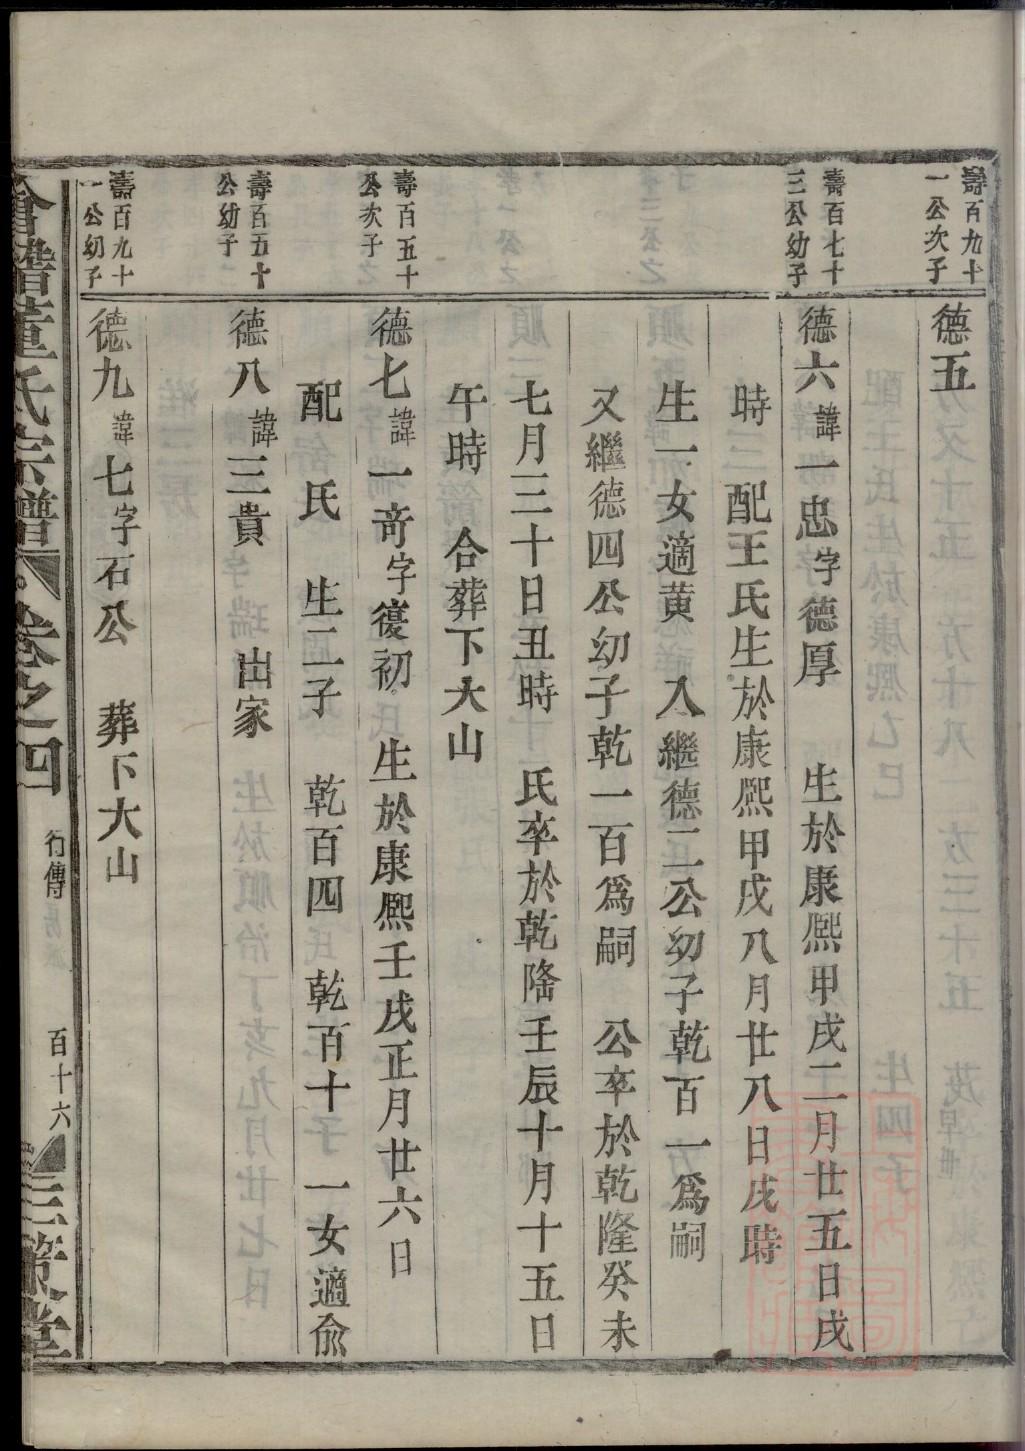 壽百九十
一公次子
德五
壽百七十
三公幼子
德六諱一忠字德厚 生於康熙甲戌二月廿五日戌
時 配王氏生於康熙甲戌八月廿八日戌時
生一女適黄 入繼德二公幼子乾百一爲嗣
又繼德四公幼子乾一百爲嗣 公卒於乾隆癸未
七月三十日丑時 氏卒於乾隆壬辰十月十五日
午時 合葬下大山
壽百五十
公次子
德七諱一奇字復初 生於康熙壬戌正月廿六日
配 氏 生二子 乾百四 乾百十 一女適俞
壽百五十
公幼子
德八諱三貴 出家
壽百九十
一公幼子
德九諱七字石公 葬下大山
會稽董氏宗譜 卷之四 行傳 百十六 三策堂